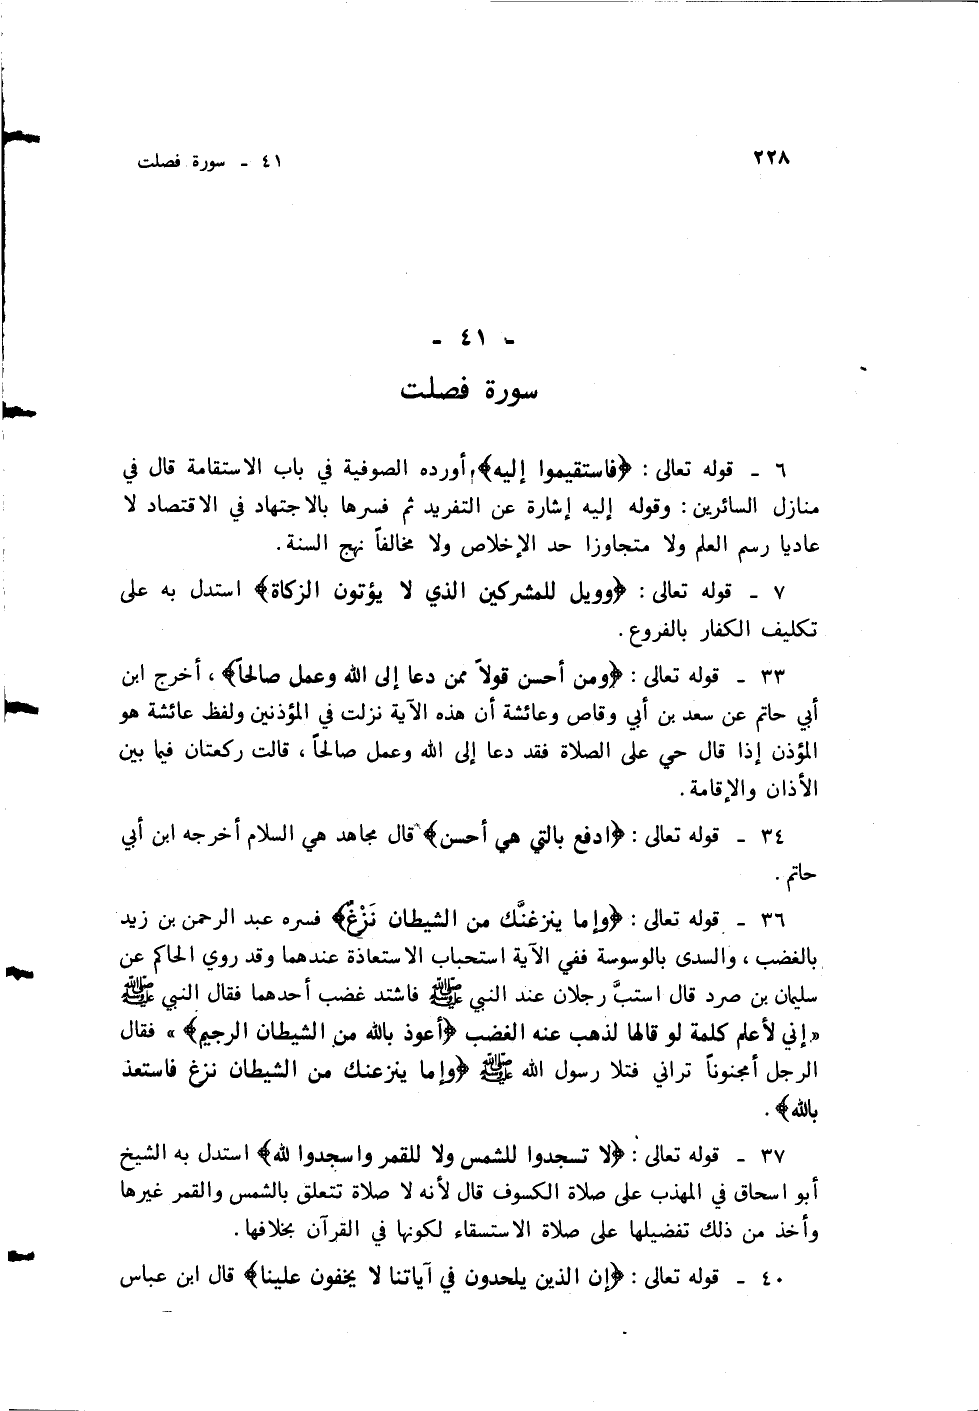 ٢٢٨
٤١ - سورة فصلت
- ٤١ -
سورة فصلت
٦ - قوله تعالى : ﴿فاستقيموا إليه﴾، أورده الصوفية في باب الاستقامة قال في
منازل السائرين : وقوله إليه إشارة عن التفريد ثم فسرها بالاجتهاد في الاقتصاد لا
عاديا رسم العلم ولا متجاوزا حد الإخلاص ولا مخالفاً نهج السنة .
٧ - قوله تعالى : ﴿وويل للمشركين الذي لا يؤتون الزكاة﴾ استدل به على
تكليف الكفار بالفروع .
٣٣ - قوله تعالى : ﴿ومن أحسن قولاً ممن دعا إلى الله وعمل صالحاً﴾ ، أخرج ابن
أبي حاتم عن سعد بن أبي وقاص وعائشة أن هذه الآية نزلت في المؤذنين ولفظ عائشة هو
المؤذن إذا قال حي على الصلاة فقد دعا إلى الله وعمل صالحاً ، قالت ركعتان فيما بين
الأذان والإقامة .
٣٤ - قوله تعالى : ﴿ادفع بالتي هي أحسن﴾ قال مجاهد هي السلام أخرجه ابن أبي
حاتم .
٣٦ - قوله تعالى : ﴿وإما ينزغنَّك من الشيطان نَزْغٌ﴾ فسره عبد الرحمن بن زيد
بالغضب ، والسدى بالوسوسة ففي الآية استحباب الاستعاذة عندهما وقد روي الحاكم عن
سليمان بن صرد قال استبَّ رجلان عند النبي ﷺ فاشتد غضب أحدهما فقال النبي ﷺ
«إني لأعلم كلمة لو قالها لذهب عنه الغضب ﴿أعوذ بالله من الشيطان الرجيم﴾» فقال
الرجل أمجنوناً تراني فتلا رسول الله ﷺ ﴿وإما ينزعنك من الشيطان نزغ فاستعذ
بالله﴾ .
٣٧ - قوله تعالى : ﴿لا تسجدوا للشمس ولا للقمر واسجدوا لله﴾ استدل به الشيخ
أبو اسحاق في المهذب على صلاة الكسوف قال لأنه لا صلاة تتعلق بالشمس والقمر غيرها
وأخذ من ذلك تفضيلها على صلاة الاستسقاء لكونها في القرآن بخلافها .
٤٠ - قوله تعالى : ﴿إن الذين يلحدون في آياتنا لا يخفون علينا﴾ قال ابن عباس